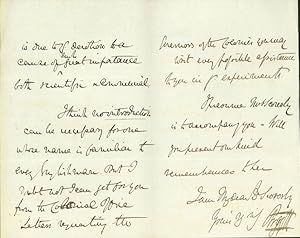 is due to yr devotion to a
such
cause of great importance
both scientific & commercial
I think no introduction
can be necessary for one
whose name is familiar to
every Englishman But I
doubt not I can get for you
from the Colonial Office
Letters requesting the
Governors of the Colonies you may
visit every possible assistance
to you in yr experiments
I presume Mrs
is to accompany you - Will
you present my kind
remembrances to her
I am My dear
Yours